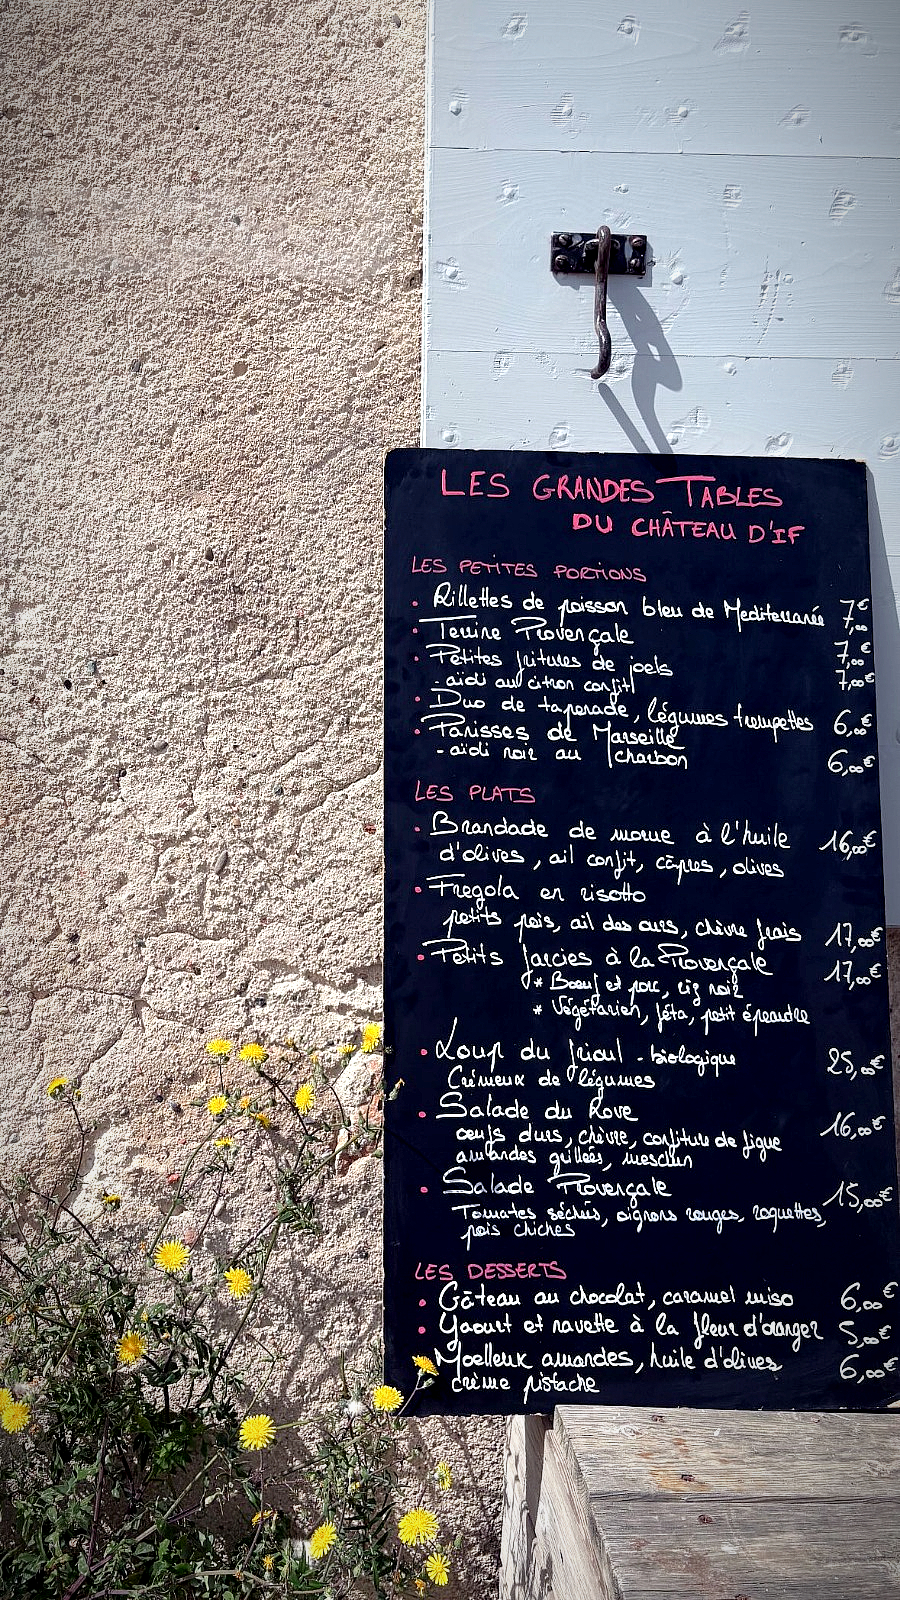 LES GRANDES TABLES
DU CHÂTEAU D'IF
LES PETITES PORTIONS
. Rillettes de poisson bleu de Mediterranée 7,00€
. Terrine Provençale 7,00€
. Petites fritures de joels 7,00€
- aïoli au citron confit
. Duo de tapenade, légumes trempettes 6,00€
. Panisses de Marseille
- aïoli noir au charbon 6,00€
LES PLATS
. Brandade de morue à l'huile 16,00€
d'olives, ail confit, câpres, olives
. Fregola en risotto
petits pois, ail des ours, chèvre frais 17,00€
. Petits farcies à la Provençale 17,00€
* Bœuf et porc, riz noir
* Végétarien, féta, petit épeautre
. Loup du frioul - biologique 25,00€
Crémeux de légumes
. Salade du Rove 16,00€
œufs durs, chèvre, confiture de figue
amandes grillées, mesclun
. Salade Provençale 15,00€
Tomates séchés, oignons rouges, roquettes,
pois chiches
LES DESSERTS
. Gâteau au chocolat, caramel miso 6,00€
. Yaourt et navette à la fleur d'oranger 5,00€
Moelleux amandes, huile d'olives 6,00€
crème pistache